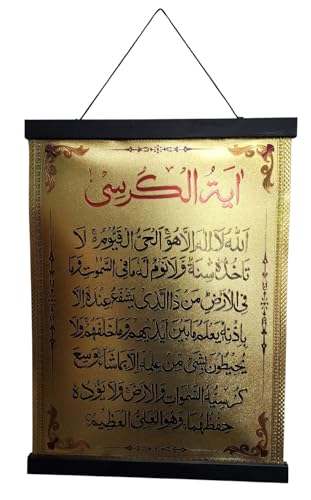 اية الكرسى
الله لا اله الا هو الحى القيوم لا
تاخذه سنة ولا نوم له ما فى السموت وما
فى الارض من ذا الذى يشفع عنده الا
باذنه يعلم ما بين ايديهم وما خلفهم ولا
يحيطون بشئ من علمه الا بما شاء وسع
كرسيه السموات والارض ولا يؤده
حفظهما وهو العلى العظيم